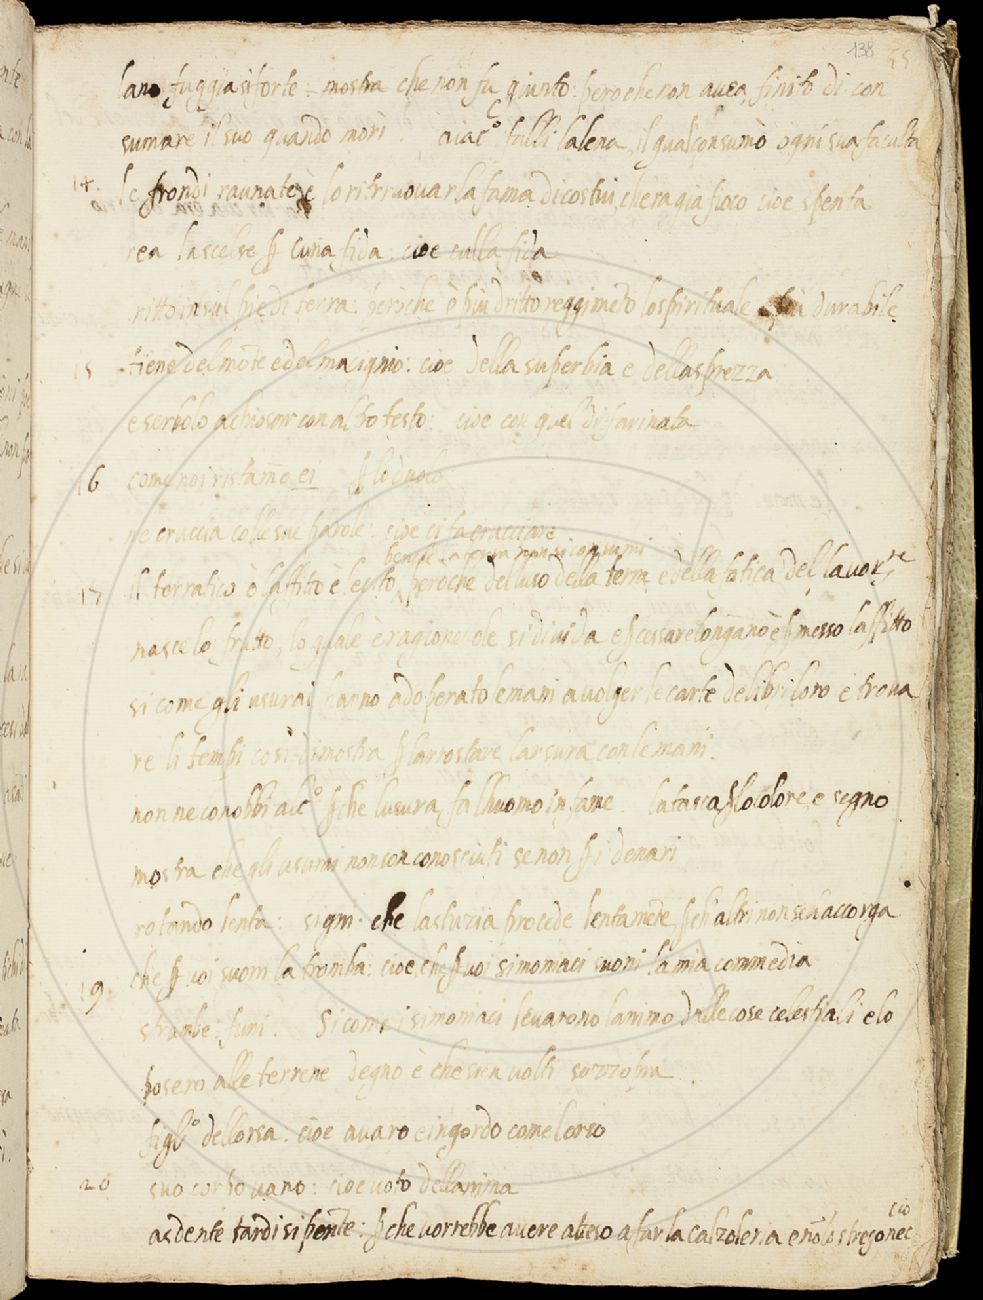 138 55
lano fuggia si forte: mostra che non fu giunto: pero che non avea finito di con
sumare il suo quando morì. a iacº tulli lalena, il qual consumò ogni sua faculta
14. le frondi raunate, è lo ritrrovuar la fama di costui, chera gia fioco cioe spenta
rea la scelse ꝑ cuna fida: cioe culla fida
ritto in sul pie di terra: perche è piu dritto reggimēto lo spirituale, e piu durabile
15 tiene del mōte e del macignio: cioe della superbia e dellasprezza
e serbolo a chiosar con altro testo: cioe con quel di farinata
16 come noi ristam̄o ei ꝑ lo duolo
ne cruccia colle sue parole: cioe ci fa crucciare
benche la terra non si consumi
17 Il terratico o laffitto è lecito, peroche delluso della terra e della fatica del lavorāre
nasce lo frutto, lo quale è ragionevole si divida e
si come gli usurai hanno adoperato le mani a volger le carte de libri loro e trova
re li tempi così dimostra ꝑ larrostare larsura con le mani.
non ne conobbi alcº ꝑche lusura fa lhuomo infame. la tasca ꝑ lo colore, e segno
mostra che gli usurai non son conosciuti se non ꝑ i denari
rotando lenta: signi. che lastuzia procede lentamēte ꝑch altri non sen accorga
19. che ꝑ voi suoni la tromba: cioe che ꝑ voi simoniaci suoni la mia commedia
strambe: funi. Si come i simoniaci levarono lanimo dalle cose celestiali e lo
posero alle terrene degno è che sien volti sozzopra.
figlº dellorsa. cioe avaro e ingordo come lorso
20 suo corpo vano: cioe voto dellanima
asdente tardi si pente: ꝑche vorrebbe avere atteso a far la calzoleria e nō lo stregonec
cio